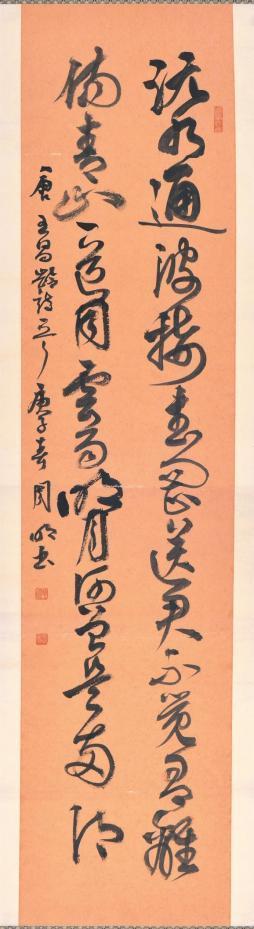 流水通波接武岡送君不覺有離
傷青山一道同雲雨明月何曾是兩鄉
唐王昌齡詩 庚子春周明书